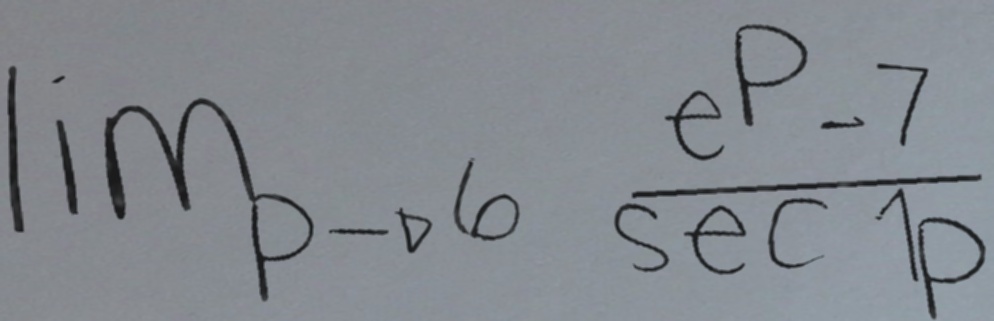 lim p→6 e^p-7 / sec 1p